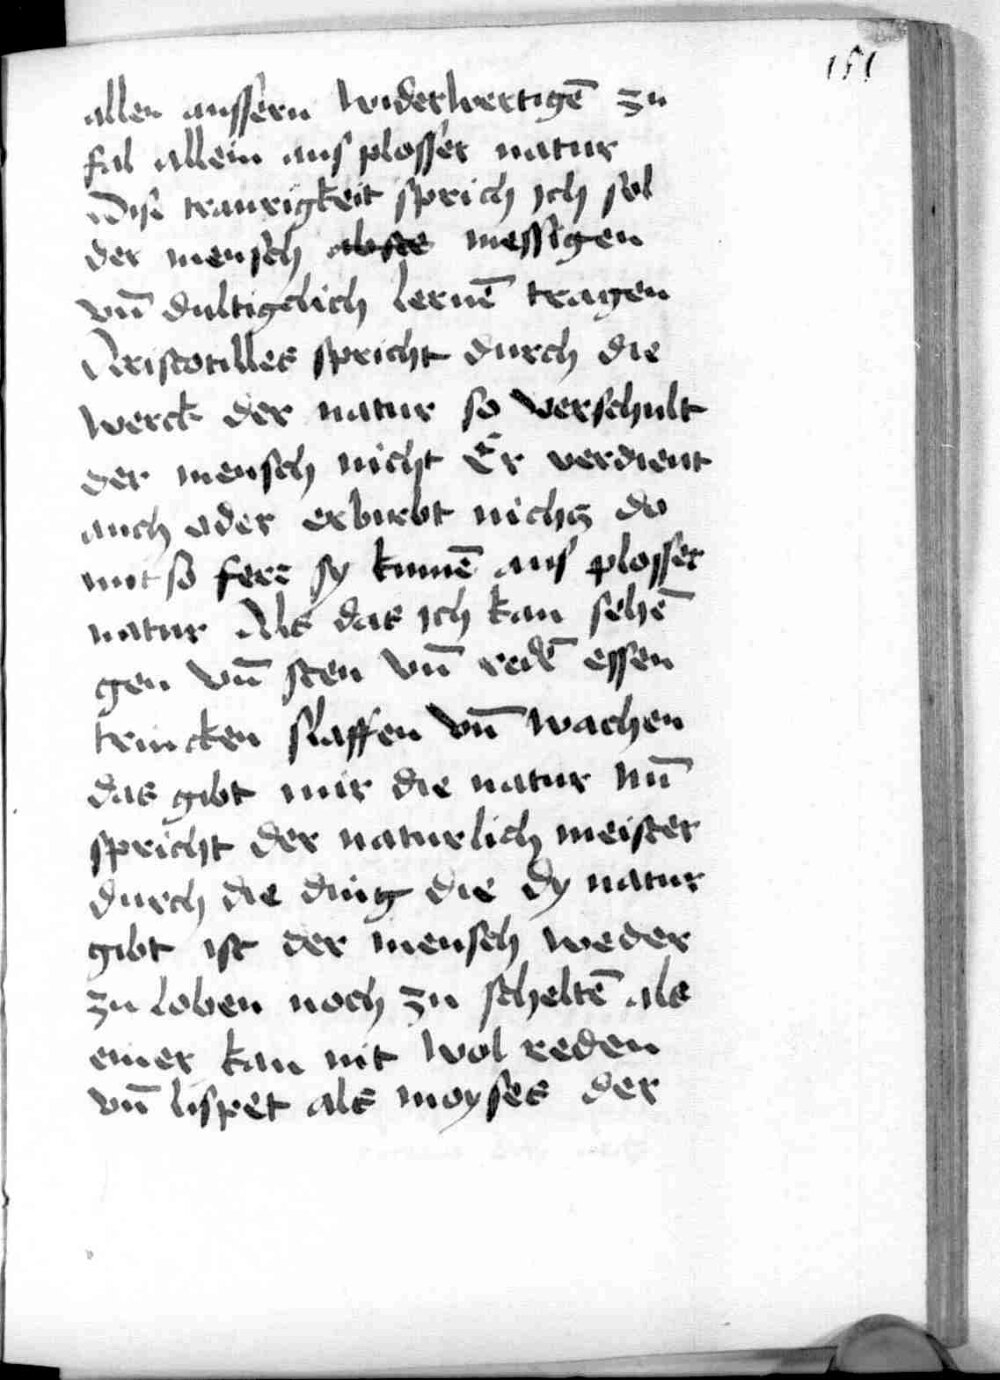 151
allen aussern widerwertigē zu
fal allein aus plosser natur
Dise traurigkeit sprich ich sol
der mensch messigen
vn̄ dultigclich lernē tragen
Aristotilles spricht durch die
werck der natur so verschult
der mensch nicht Er verdient
auch oder erbirbt nichs do
mit so ferr sy kumē aus plosser
natur Als das ich kan sehē
gen vn̄ sten vn̄ redē essen
trincken slaffen vn̄ wachen
das gibt mir die natur Nū
spricht der naturlich meister
durch die ding die dy natur
gibt ist der mensch weder
zu loben noch zu scheltē als
einer kan nit wol reden
vn̄ lispet als moyses der